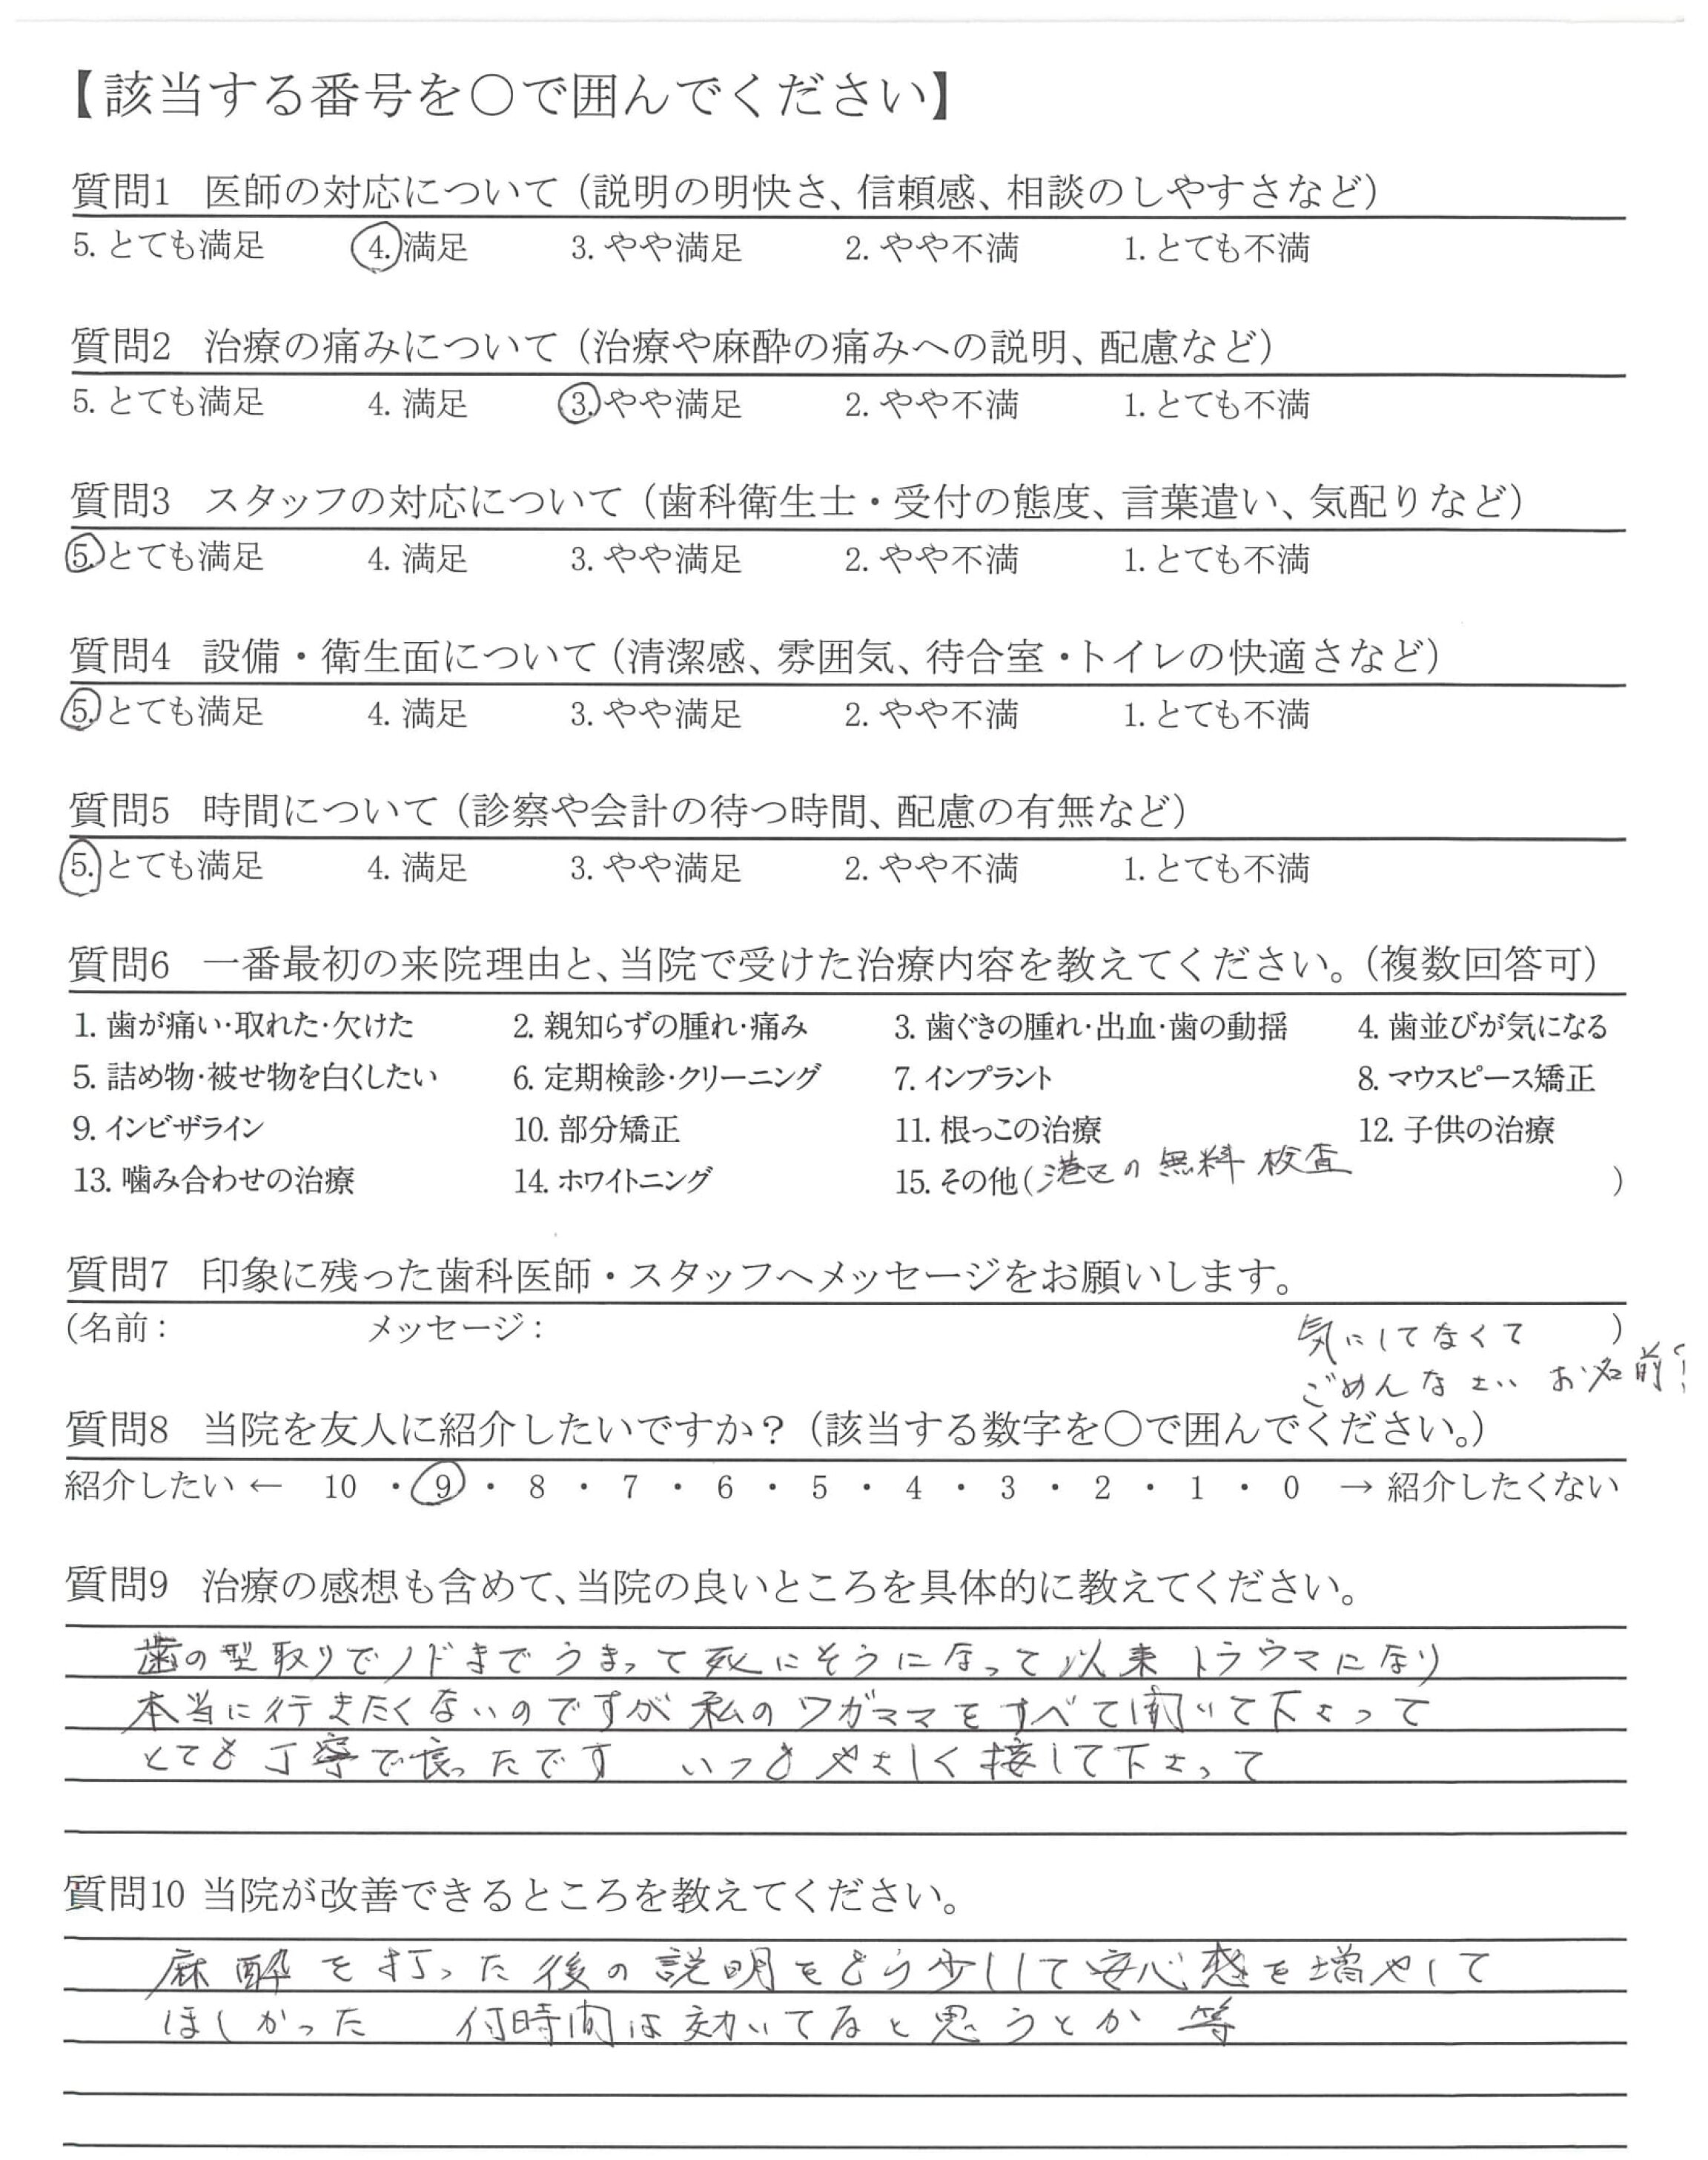 【該当する番号を○で囲んでください】
質問1 医師の対応について（説明の明快さ、信頼感、相談のしやすさなど）
5. とても満足 4. 満足 3. やや満足 2. やや不満 1. とても不満
質問2 治療の痛みについて（治療や麻酔の痛みへの説明、配慮など）
5. とても満足 4. 満足 3. やや満足 2. やや不満 1. とても不満
質問3 スタッフの対応について（歯科衛生士・受付の態度、言葉遣い、気配りなど）
5. とても満足 4. 満足 3. やや満足 2. やや不満 1. とても不満
質問4 設備・衛生面について（清潔感、雰囲気、待合室・トイレの快適さなど）
5. とても満足 4. 満足 3. やや満足 2. やや不満 1. とても不満
質問5 時間について（診察や会計の待つ時間、配慮の有無など）
5. とても満足 4. 満足 3. やや満足 2. やや不満 1. とても不満
質問6 一番最初の来院理由と、当院で受けた治療内容を教えてください。（複数回答可）
1. 歯が痛い・取れた・欠けた 2. 親知らずの腫れ・痛み 3. 歯ぐきの腫れ・出血・歯の動揺 4. 歯並びが気になる
5. 詰め物・被せ物を白くしたい 6. 定期検診・クリーニング 7. インプラント 8. マウスピース矯正
9. インビザライン 10. 部分矯正 11. 根っこの治療 12. 子供の治療
13. 噛み合わせの治療 14. ホワイトニング 15. その他(港区の無料検査 )
質問7 印象に残った歯科医師・スタッフへメッセージをお願いします。
(名前： メッセージ： 気にしてなくて )
ごめんなさい お名前!
質問8 当院を友人に紹介したいですか？（該当する数字を○で囲んでください。）
紹介したい ← 10 ・ 9 ・ 8 ・ 7 ・ 6 ・ 5 ・ 4 ・ 3 ・ 2 ・ 1 ・ 0 → 紹介したくない
質問9 治療の感想も含めて、当院の良いところを具体的に教えてください。
歯の型取りでノドまでうまって死にそうになって以来トラウマになり
本当に行きたくないのですが私のワガママをすべて聞いて下さって
とても丁寧で良ったです いつもやさしく接して下さって
質問10 当院が改善できるところを教えてください。
麻酔を打った後の説明をもう少しして安心感を増やして
ほしかった 何時間は効いてると思うとか 等